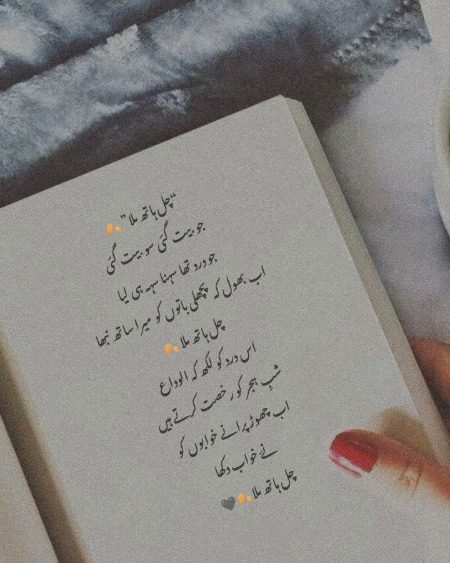 "چل ہاتھ ملا"🍂
جو بیت گئی سو بیت گئی
جو درد تھا سہنا سہہ ہی لیا
اب بھول کہ پچھلی باتوں کو میرا ساتھ نبھا
چل ہاتھ ملا🍂
اس درد کو لکھ کہ الوداع
شبِ ہجر کو رخصت کرتے ہیں
اب چھوڑ پرانے خوابوں کو
نئے خواب دکھا
چل ہاتھ ملا🍂🖤